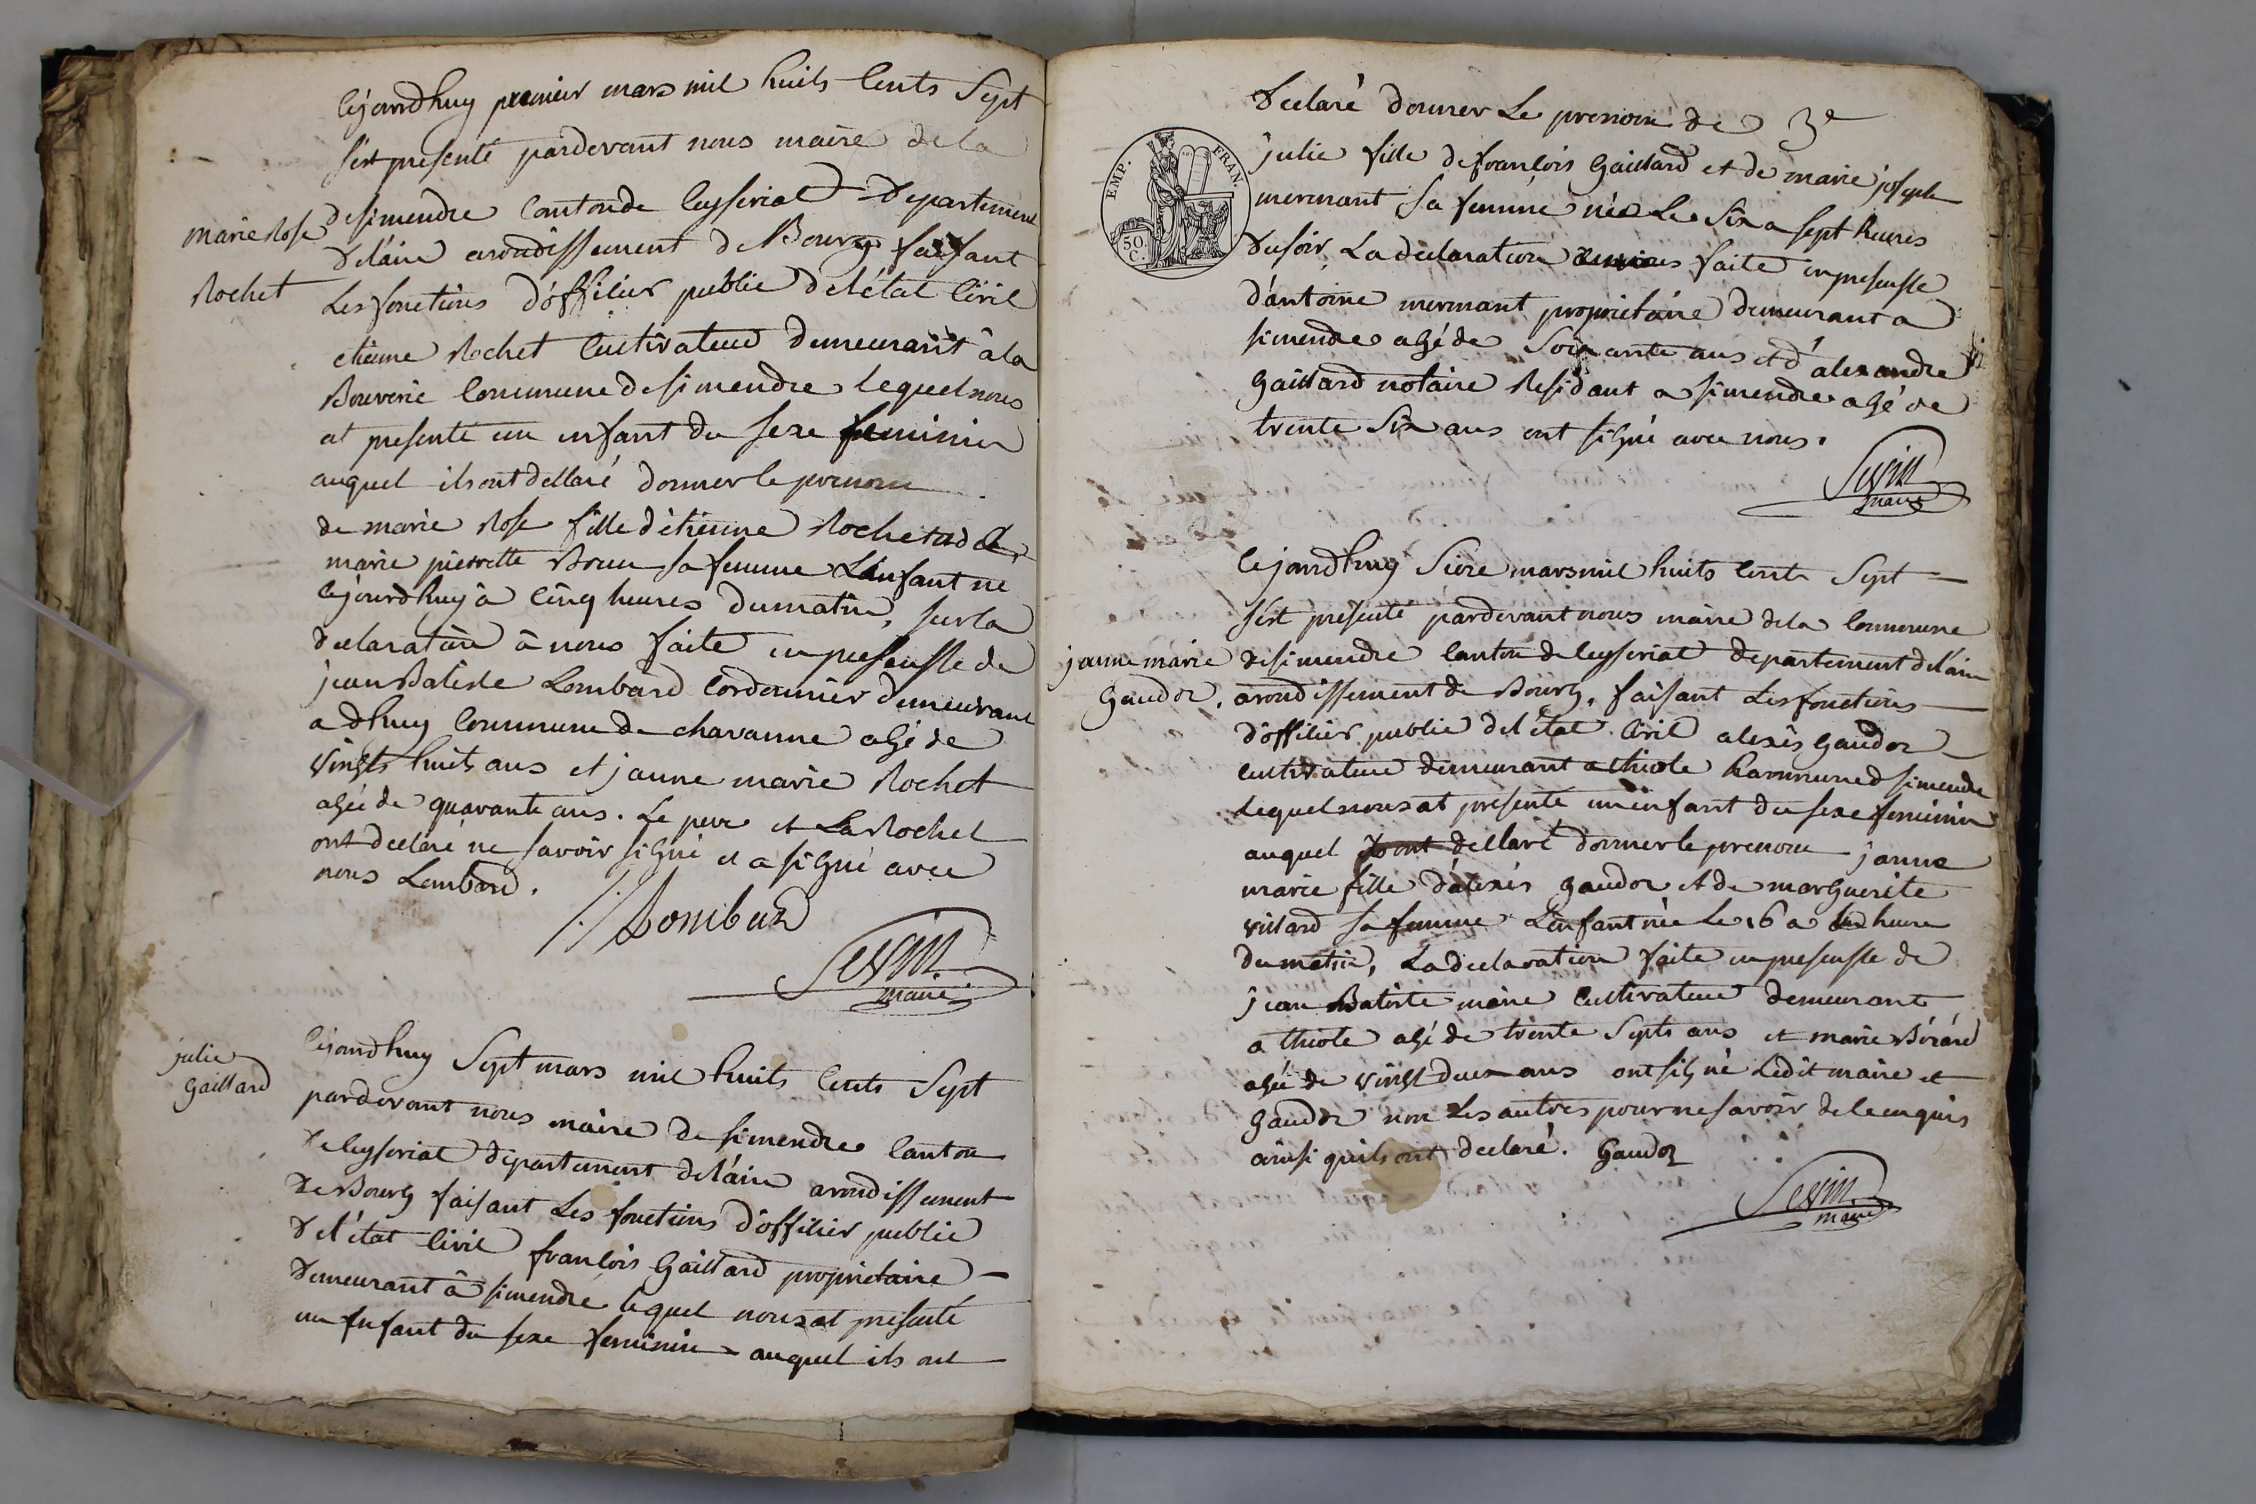 Cejourdhuy premier mars mil huits Cents Sept
s'est presenté pardevant nous maire de la
marie Rose
Rochet
desimendre Canton de Ceyseriat Departement
de l'ain arondissement de Bourg faisant
Les fonctions d'officier public de l'état Civil
etienne Rochet Cultivateur Demeurant à la
Bouverie Commune de simendre lequel nous
at presenté un enfant du sexe feminin
auquel ils ont dellaré donner le prenom
de marie Rose fille d'étienne Rochet et de
marie pierrette sa femme L'enfant né
Cejourdhuy à Cinq heures du matin, sur la
declaration à nous faite en presensse de
jean Batiste Lombard Cordonnier demeurant
a dhuy Commune de chavanne agé de
vingts huits ans et janne marie Rochet
agée de quarante ans. Le pere et La Rochet
ont declaré ne savoir signé et a signé avec
nous Lombard.
Lombard
Sevin
maire
julie
gaillard
Cejourdhuy Sept mars mil huits Cents Sept
pardevant nous maire de simendre Canton
de Ceyseriat departement de l'ain arondissement
de Bourg faisant Les fonctions d'officier public
de l'état Civil françois Gaillard propriétaire
Demeurant à simendre lequel nous at presenté
un enfant du sexe feminin auquel ils ont
Declaré donner Le prenom de 3e
EMP. FRAN.
50.
C.
julie fille de françois Gaillard et de marie joseph
mermant sa femme née Le Six a sept heures
du soir, La declaration a nous faite en presensse
d'antoine mermant propriétaire demeurant a
simendre agé de Soixante ans et d'alexandre
Gaillard notaire Residant a simendre agé de
trente Six ans ont signé avec nous.
Sevin
maire
Cejourdhuy Sieze mars mil huits Cents Sept
s'est presenté pardevant nous maire de la Commune
janne marie
Gaudoz.
desimendre Canton de Ceyseriat departement de l'ain
arondissement de Bourg, faisant Les fonctions
d'officier public de l'état Civil alexis Gaudoz
Cultivateur demeurant a thiole Kammune d simendre
lequel nous at presenté un enfant du sexe feminin
auquel dellaré donner le prenom janne
marie fille d'alexis Gaudoz et de marguerite
villard sa femme L'enfant née Le 16 a heure
du matin, La declaration faite en presensse de
jean Batiste maire Cultivateur demeurant
a thiole agé de trente Septs ans et marie Bérard
agée de vingt deux ans ont signé Ledit maire et
Gaudoz non Les autres pour ne savoir de le enquis
ainsi quils ont declaré. Gaudoz
Sevin
maire